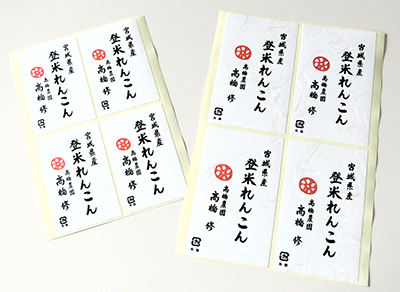 宮城県産
登米れんこん
高橋農園
高橋 修
宮城県産
登米れんこん
高橋農園
高橋 修
宮城県産
登米れんこん
高橋農園
高橋 修
宮城県産
登米れんこん
高橋農園
高橋 修
宮城県産
登米れんこん
高橋農園
高橋 修
宮城県産
登米れんこん
高橋農園
高橋 修
宮城県産
登米れんこん
高橋農園
高橋 修
宮城県産
登米れんこん
高橋農園
高橋 修